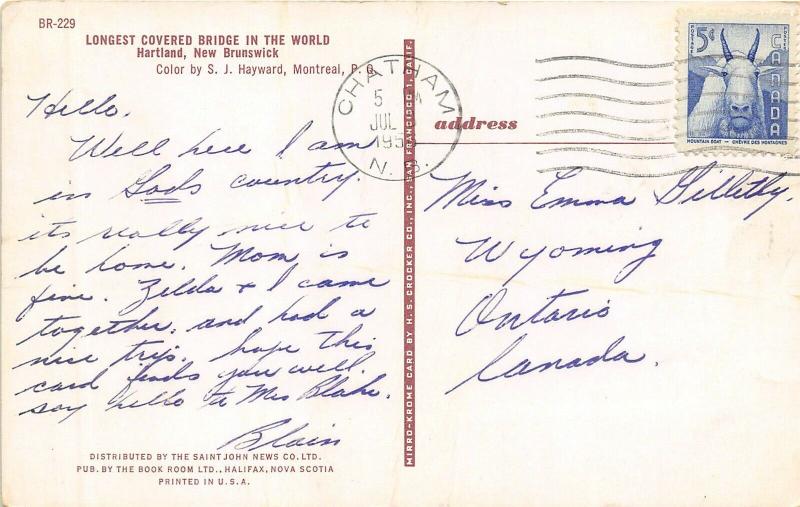 BR-229
LONGEST COVERED BRIDGE IN THE WORLD
Hartland, New Brunswick
Color by S. J. Hayward, Montreal, P. Q.
Hello.
Well here I am
in Gods country.
its really nice to
be home. Mom is
fine. Zelda + I came
together. and had a
nice trip. hope this
card finds you well.
say hello to Mrs Blake.
Blain
DISTRIBUTED BY THE SAINT JOHN NEWS CO. LTD.
PUB. BY THE BOOK ROOM LTD., HALIFAX, NOVA SCOTIA
PRINTED IN U.S.A.
MIRRO-KROME CARD BY H. S. CROCKER CO., INC., SAN FRANCISCO 1, CALIF.
CHATHAM
5
JUL
195
N. B.
address
POSTAGE POSTES
5¢
CANADA
MOUNTAIN GOAT — CHÈVRE DES MONTAGNES
Miss Emma
Wyoming
Ontario
Canada.